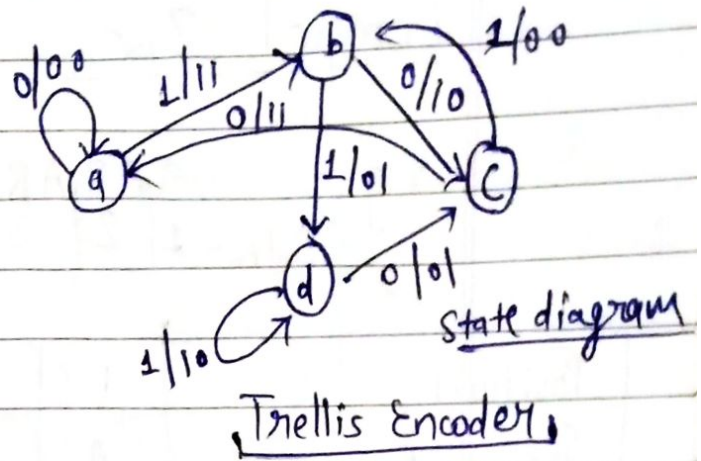 b
1/00
0/00
1/11
0/10
0/11
a
1/01
C
d
0/01
1/10
State diagram
Trellis Encoder